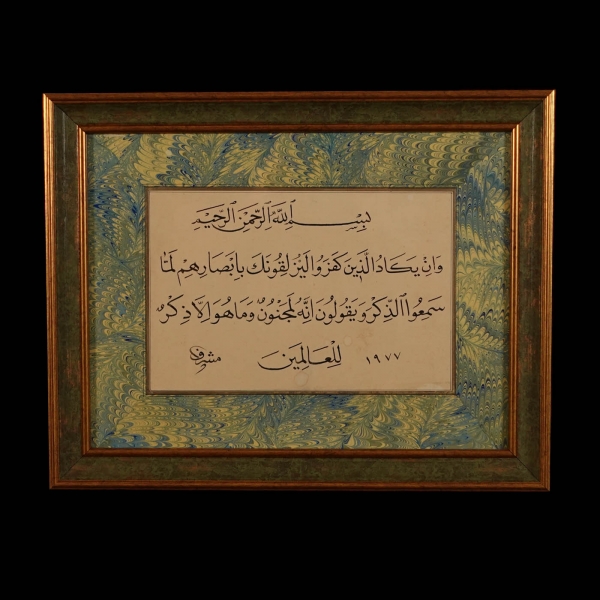 بِسْمِ اللّٰهِ الرَّحْمٰنِ الرَّحِيْمِ
وَاِنْ يَكَادُ الَّذِينَ كَفَرُوا لَيُزْلِقُونَكَ بِاَبْصَارِهِمْ لَمَّا
سَمِعُوا الذِّكْرَ وَيَقُولُونَ اِنَّهُ لَمَجْنُونٌ وَمَا هُوَ اِلَّا ذِكْرٌ
لِلْعَالَمِينَ
١٩٧٧